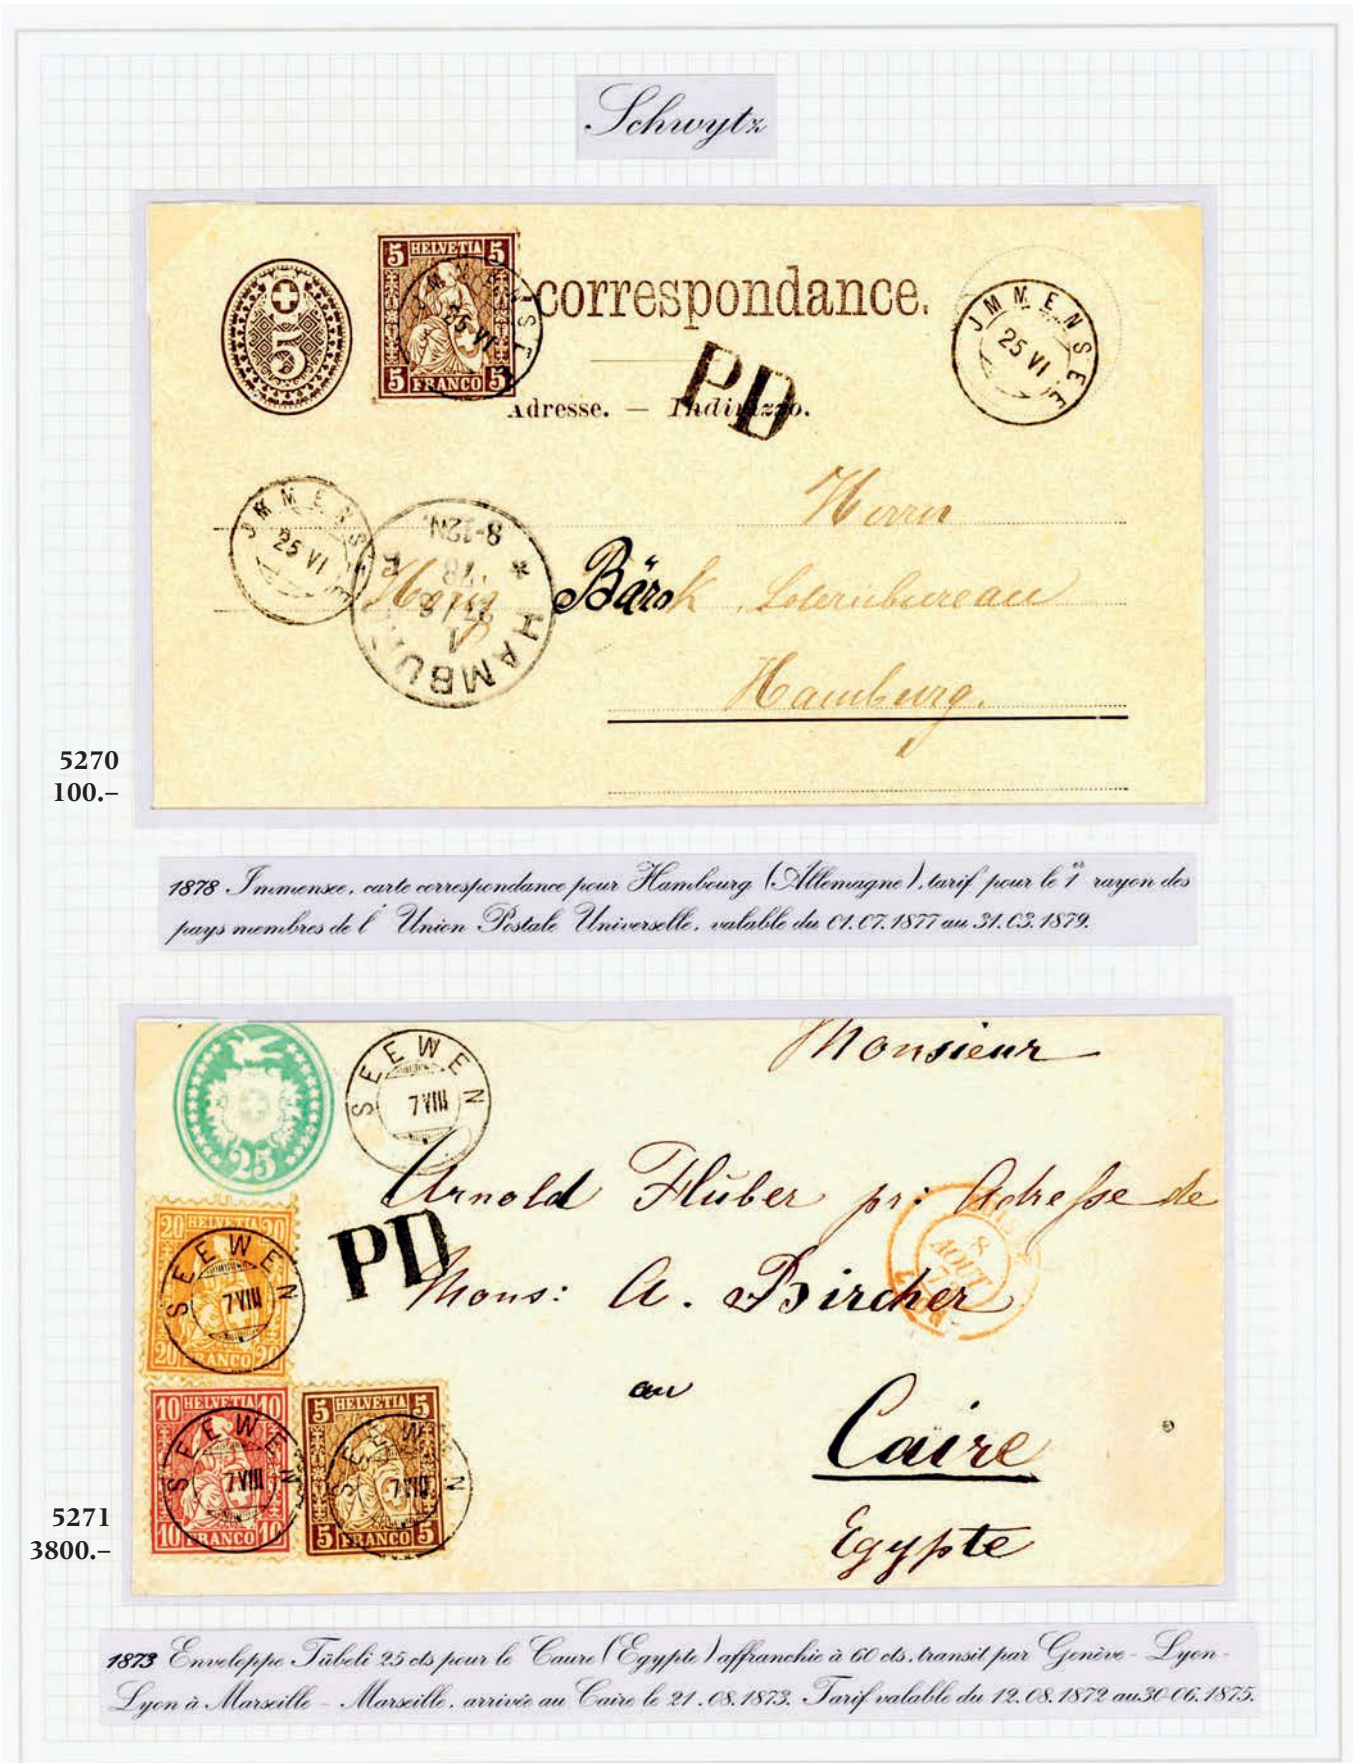 Schwytz
5
5 HELVETIA 5
5 FRANCO 5
JMMENSEE
25 VI
correspondance.
JMMENSEE
25 VI
PD
Adresse. — Indirizzo.
Herrn
JMMENSEE
25 VI
HAMBU
1
78
8-12N.
Bärok
Hamburg.
5270
100.–
1878 Immensee, carte correspondance pour Hambourg (Allemagne), tarif pour le 1er rayon des
pays membres de l' Union Postale Universelle, valable du 01.07.1877 au 31.03.1879.
25
SEEWEN
7 VIII
Monsieur
Arnold Huber pr: Adresse de
PD
Mons: A. Bircher
8
AOUT
au
Caire
Egypte
20 HELVETIA 20
20 FRANCO 20
SEEWEN
7 VIII
10 HELVETIA 10
10 FRANCO 10
SEEWEN
7 VIII
5 HELVETIA 5
5 FRANCO 5
SEEWEN
7 VIII
5271
3800.–
1873 Enveloppe Tübeli 25 cts pour le Caure (Egypte) affranchie à 60 cts, transit par Genève - Lyon -
Lyon à Marseille - Marseille, arrivée au Caire le 21.08.1873. Tarif valable du 12.08.1872 au 30.06.1875.